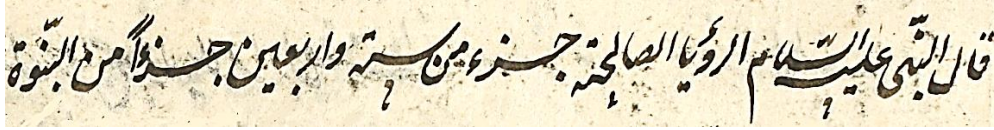 قال النبی علیه السلام الرؤیا الصالحة جزء من ستة واربعین جزءاً من النبوة